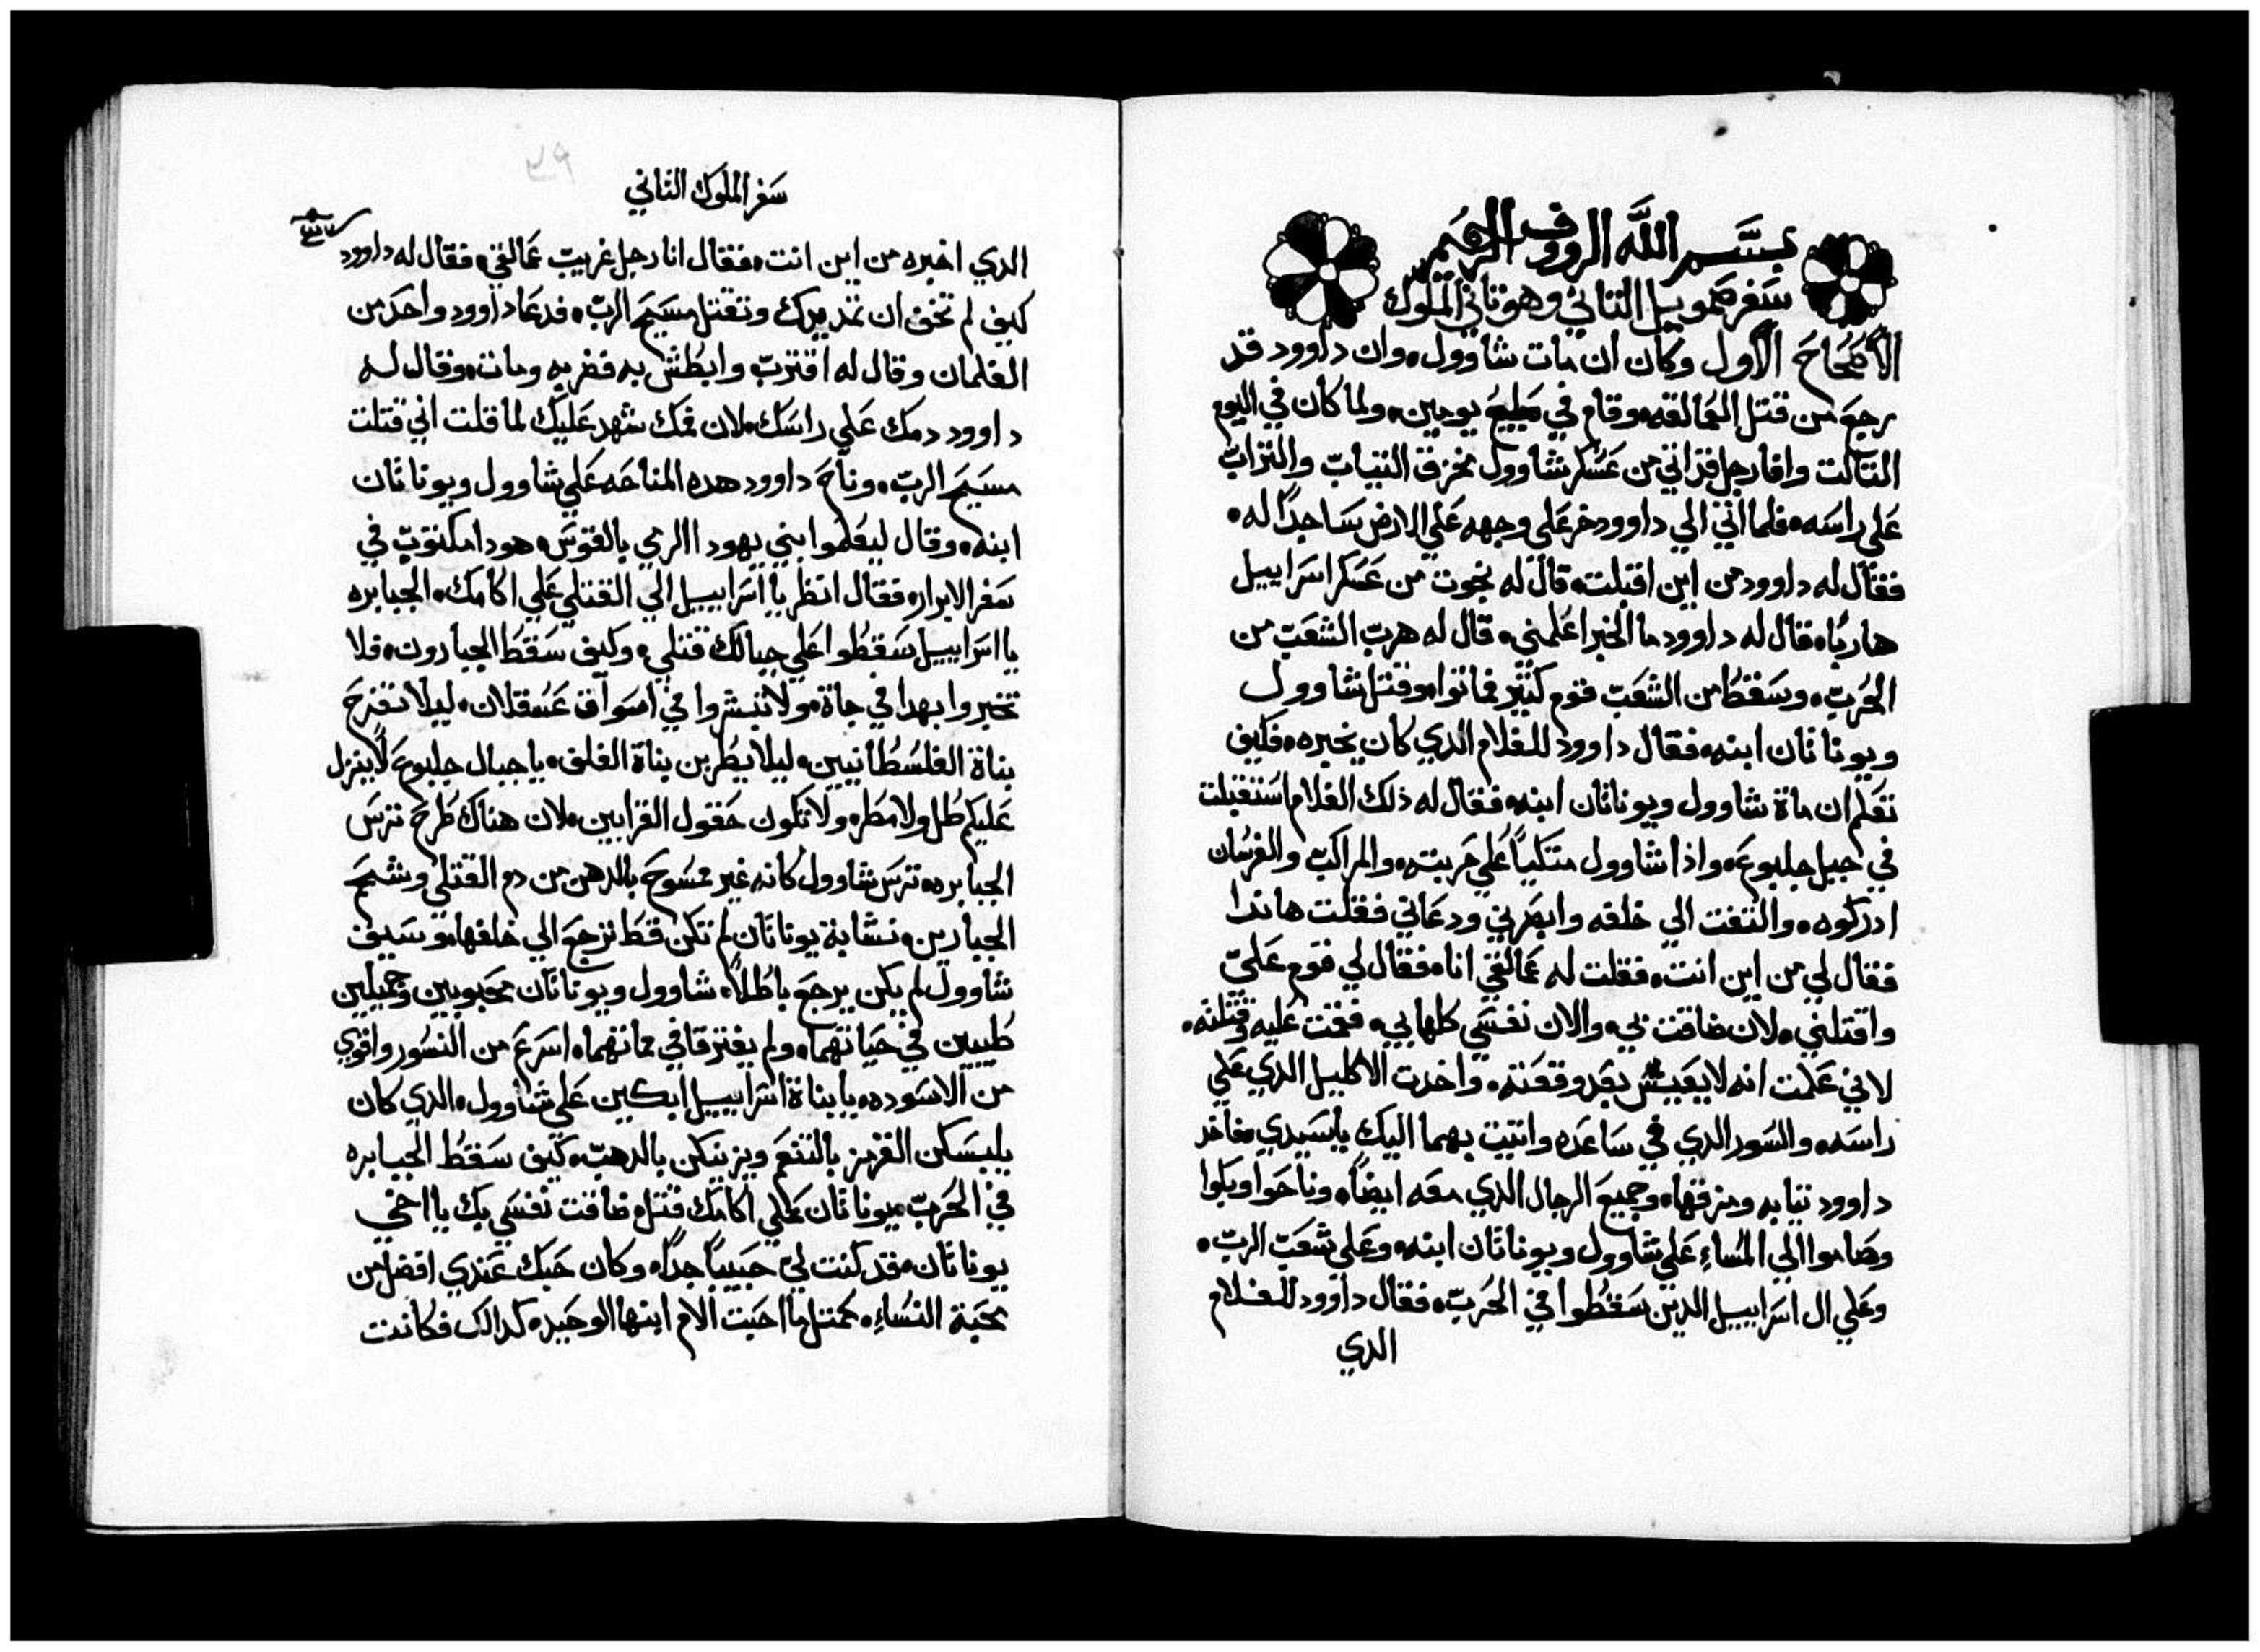 بسم الله الرووف الرحيم
سفر صمويل التاني وهو تاني الملوك
الأصحاح الأول وكان ان مات شاوول. وان داوود قد
رجع من قتل العمالقه. وقام في صيلع يومين. ولما كان في اليوم
التالت وافا رجل اتي من عسكر شاوول مخزق التياب والتراب
علي راسه. فلما اتي الي داوود خر علي وجهه علي الارض ساجداً له.
فقال له داوود من اين اقبلت. قال له نجوت من عسكر اسراييل
هارباً. قال له داوود ما الخبر اعلمني. قال له هرب الشعب من
الحرب. وسقط من الشعب قوم كتير فماتوا. وقتل شاوول
ويوناتان ابنه. فقال داوود للغلام الدي كان يخبره. فكيف
تعلم ان ماة شاوول ويوناتان ابنه. فقال له ذلك الغلام استقبلت
في جبل جلبوع. واذا شاوول متكياً علي حربته. والمراكب والفرسان
ادركوه. والتفت الي خلفه وابصرني ودعاني فقلت هاندا
فقال لي من اين انت. فقلت له عمالقي انا. فقال لي قوم عليّ
واقتلني. لان ضاقت بي. والان نفسي كلها بي. فقمت عليه وقتلته.
لاني علمت انه لا يعيش بعد وقعته. واخدت الاكليل الدي علي
راسه. والسور الدي في ساعده واتيت بهما اليك ياسيدي. فاخد
داوود تيابه ومزقها. وجميع الرجال الدي معه ايضاً. وناحوا وبكوا
وصاموا الي المساءِ علي شاوول ويوناتان ابنه. وعلي شعب الرب.
وعلي ال اسراييل الدين سقطوا في الحرب. فقال داوود للغلام
الدي
سفر الملوك التاني
٣٩
الدي اخبره من اين انت. فقال انا رجل غريب عمالقي. فقال له داوود
كيف لم تخف ان تمد يدك وتقتل مسيح الرب. فدعا داوود واحد من
الغلمان وقال له اقترب وابطش به فضربه ومات. وقال له
داوود دمك علي راسك. لان فمك شهد عليك لما قلت اني قتلت
مسيح الرب. وناح داوود هده المناحه علي شاوول ويوناتان
ابنه. وقال ليعلموا بني يهودا الرمي بالقوس. هودا مكتوب في
سفر الابرار. فقال انظر يا اسراييل الي القتلي علي اكامك. الجبابره
يا اسراييل سقطوا علي جبالك قتلي. وكيف سقط الجبارون. فلا
تخبروا بهدا في جاة. ولا تبشروا في اسواق عسقلان. ليلا تفرح
بناة الفلسطانيين. ليلا يطربن بناة الغلف. يا جبال جلبوع لا ينزل
عليكم طل ولا مطر. ولا تكون حقول القرابين. لان هناك طرح ترس
الجبابره. ترس شاوول كانه غير ممسوح بالدهن من دم القتلي وشحم
الجبارين. نشابة يوناتان لم تكن قط ترجع الي خلفها. وسيف
شاوول لم يكن يرجع باطلاً. شاوول ويوناتان محبوبين وجميلين
طيبين في حياتهما. ولم يفترقا في مماتهما. اسرع من النسور واقوي
من الاسوده. يا بناة اسراييل ابكين علي شاوول. الدي كان
يلبسكن القرمز بالتنعم ويزينكن بالدهب. كيف سقط الجبابره
في الحرب. يوناتان علي اكامك قتل. ضاقت نفسي بك يا اخي
يوناتان. قد كنت لي حبيباً جداً. وكان حبك عندي افضل من
محبة النساءِ. كمتل ما احبت الام ابنها الوحيد. كدالك فكانت